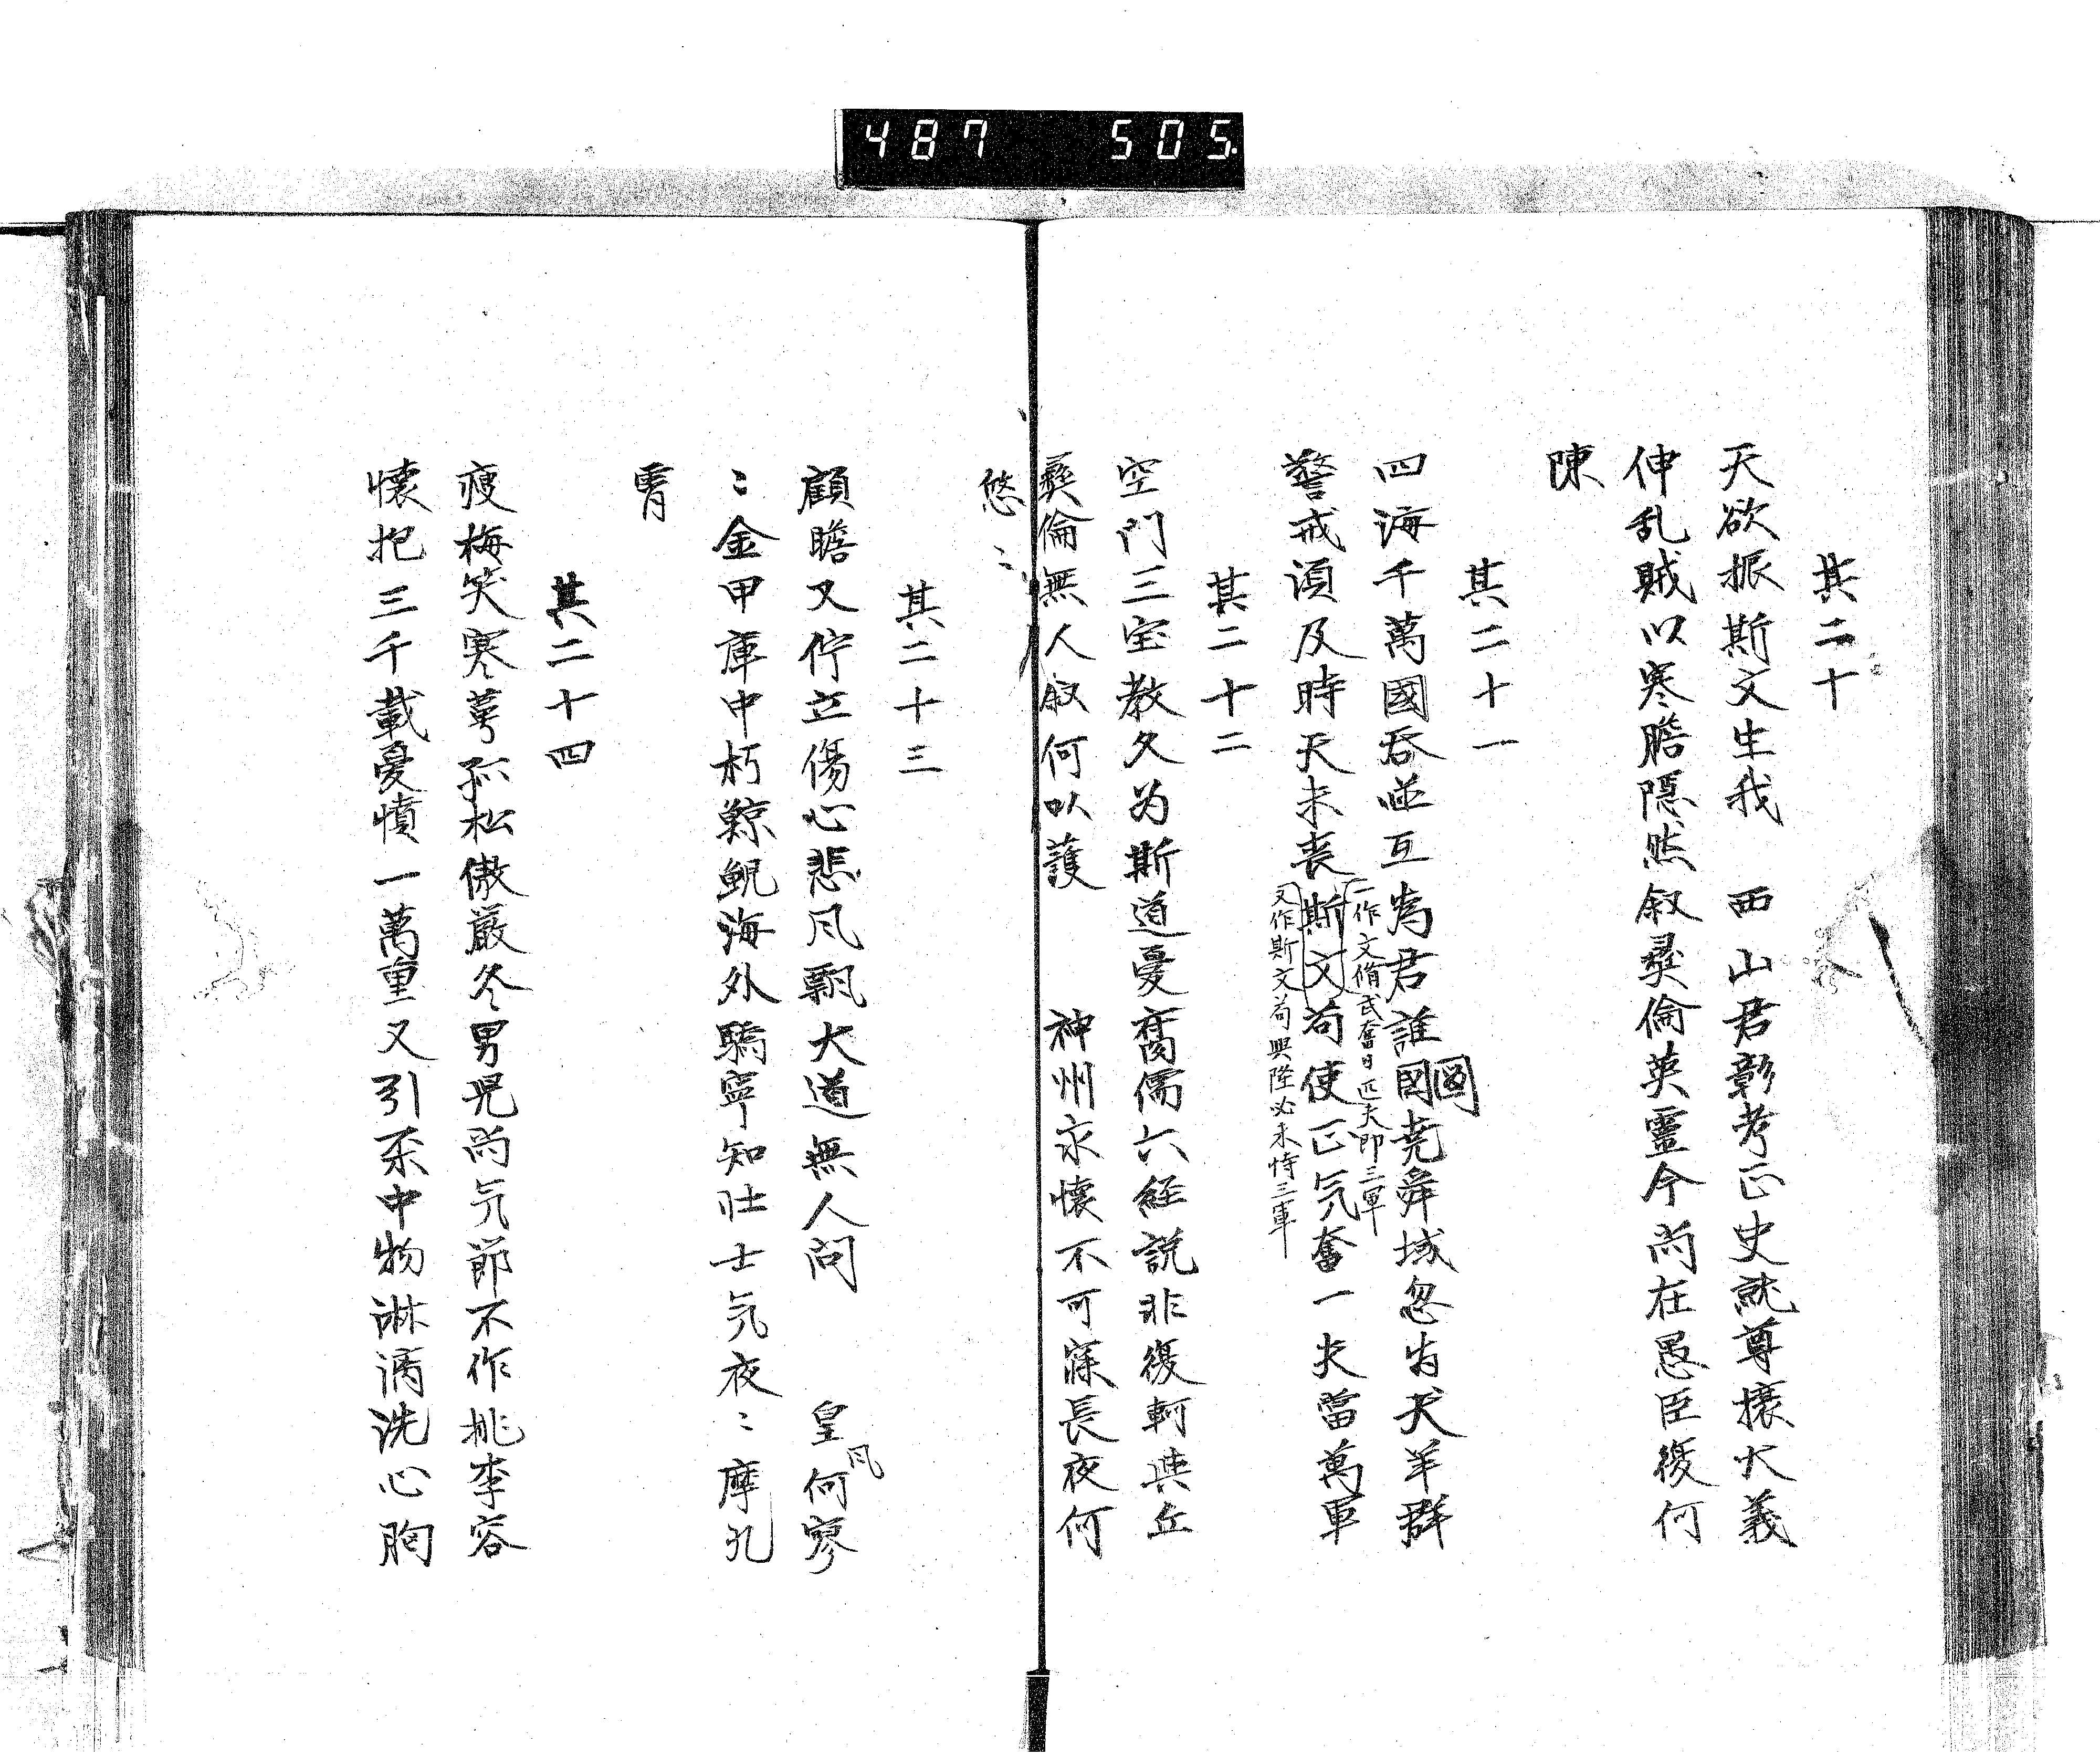 487 505.
其二十
天欲振斯文生我 西山君彰考正史就尊攘大義
伸乱賊以寒膽隠然叙彝倫英靈今尚在愚臣復何
陳
其二十一
四海千萬國呑噬互為君誰図堯舜域忽为犬羊群
國
警戒須及時天未喪斯文苟使正气奮一夫當萬軍
一作文脩武奮日匹夫即三軍
又作斯文苟興隆必未恃三軍
其二十二
空門三宝教久为斯道憂腐儒六経説非復軻與丘
彝倫無人叙何以護 神州永懐不可寐長夜何
悠〻
其二十三
顧瞻又佇立傷心悲风飄大道無人问 皇何寥
风
〻金甲庫中朽鯨鯢海外驕寧知壮士气夜〻摩孔
霄
其二十四
瘦梅笑寒萼孤松傲厳冬男児尚气節不作桃李容
懐抱三千載憂憤一萬重又引杯中物淋漓洗心胸